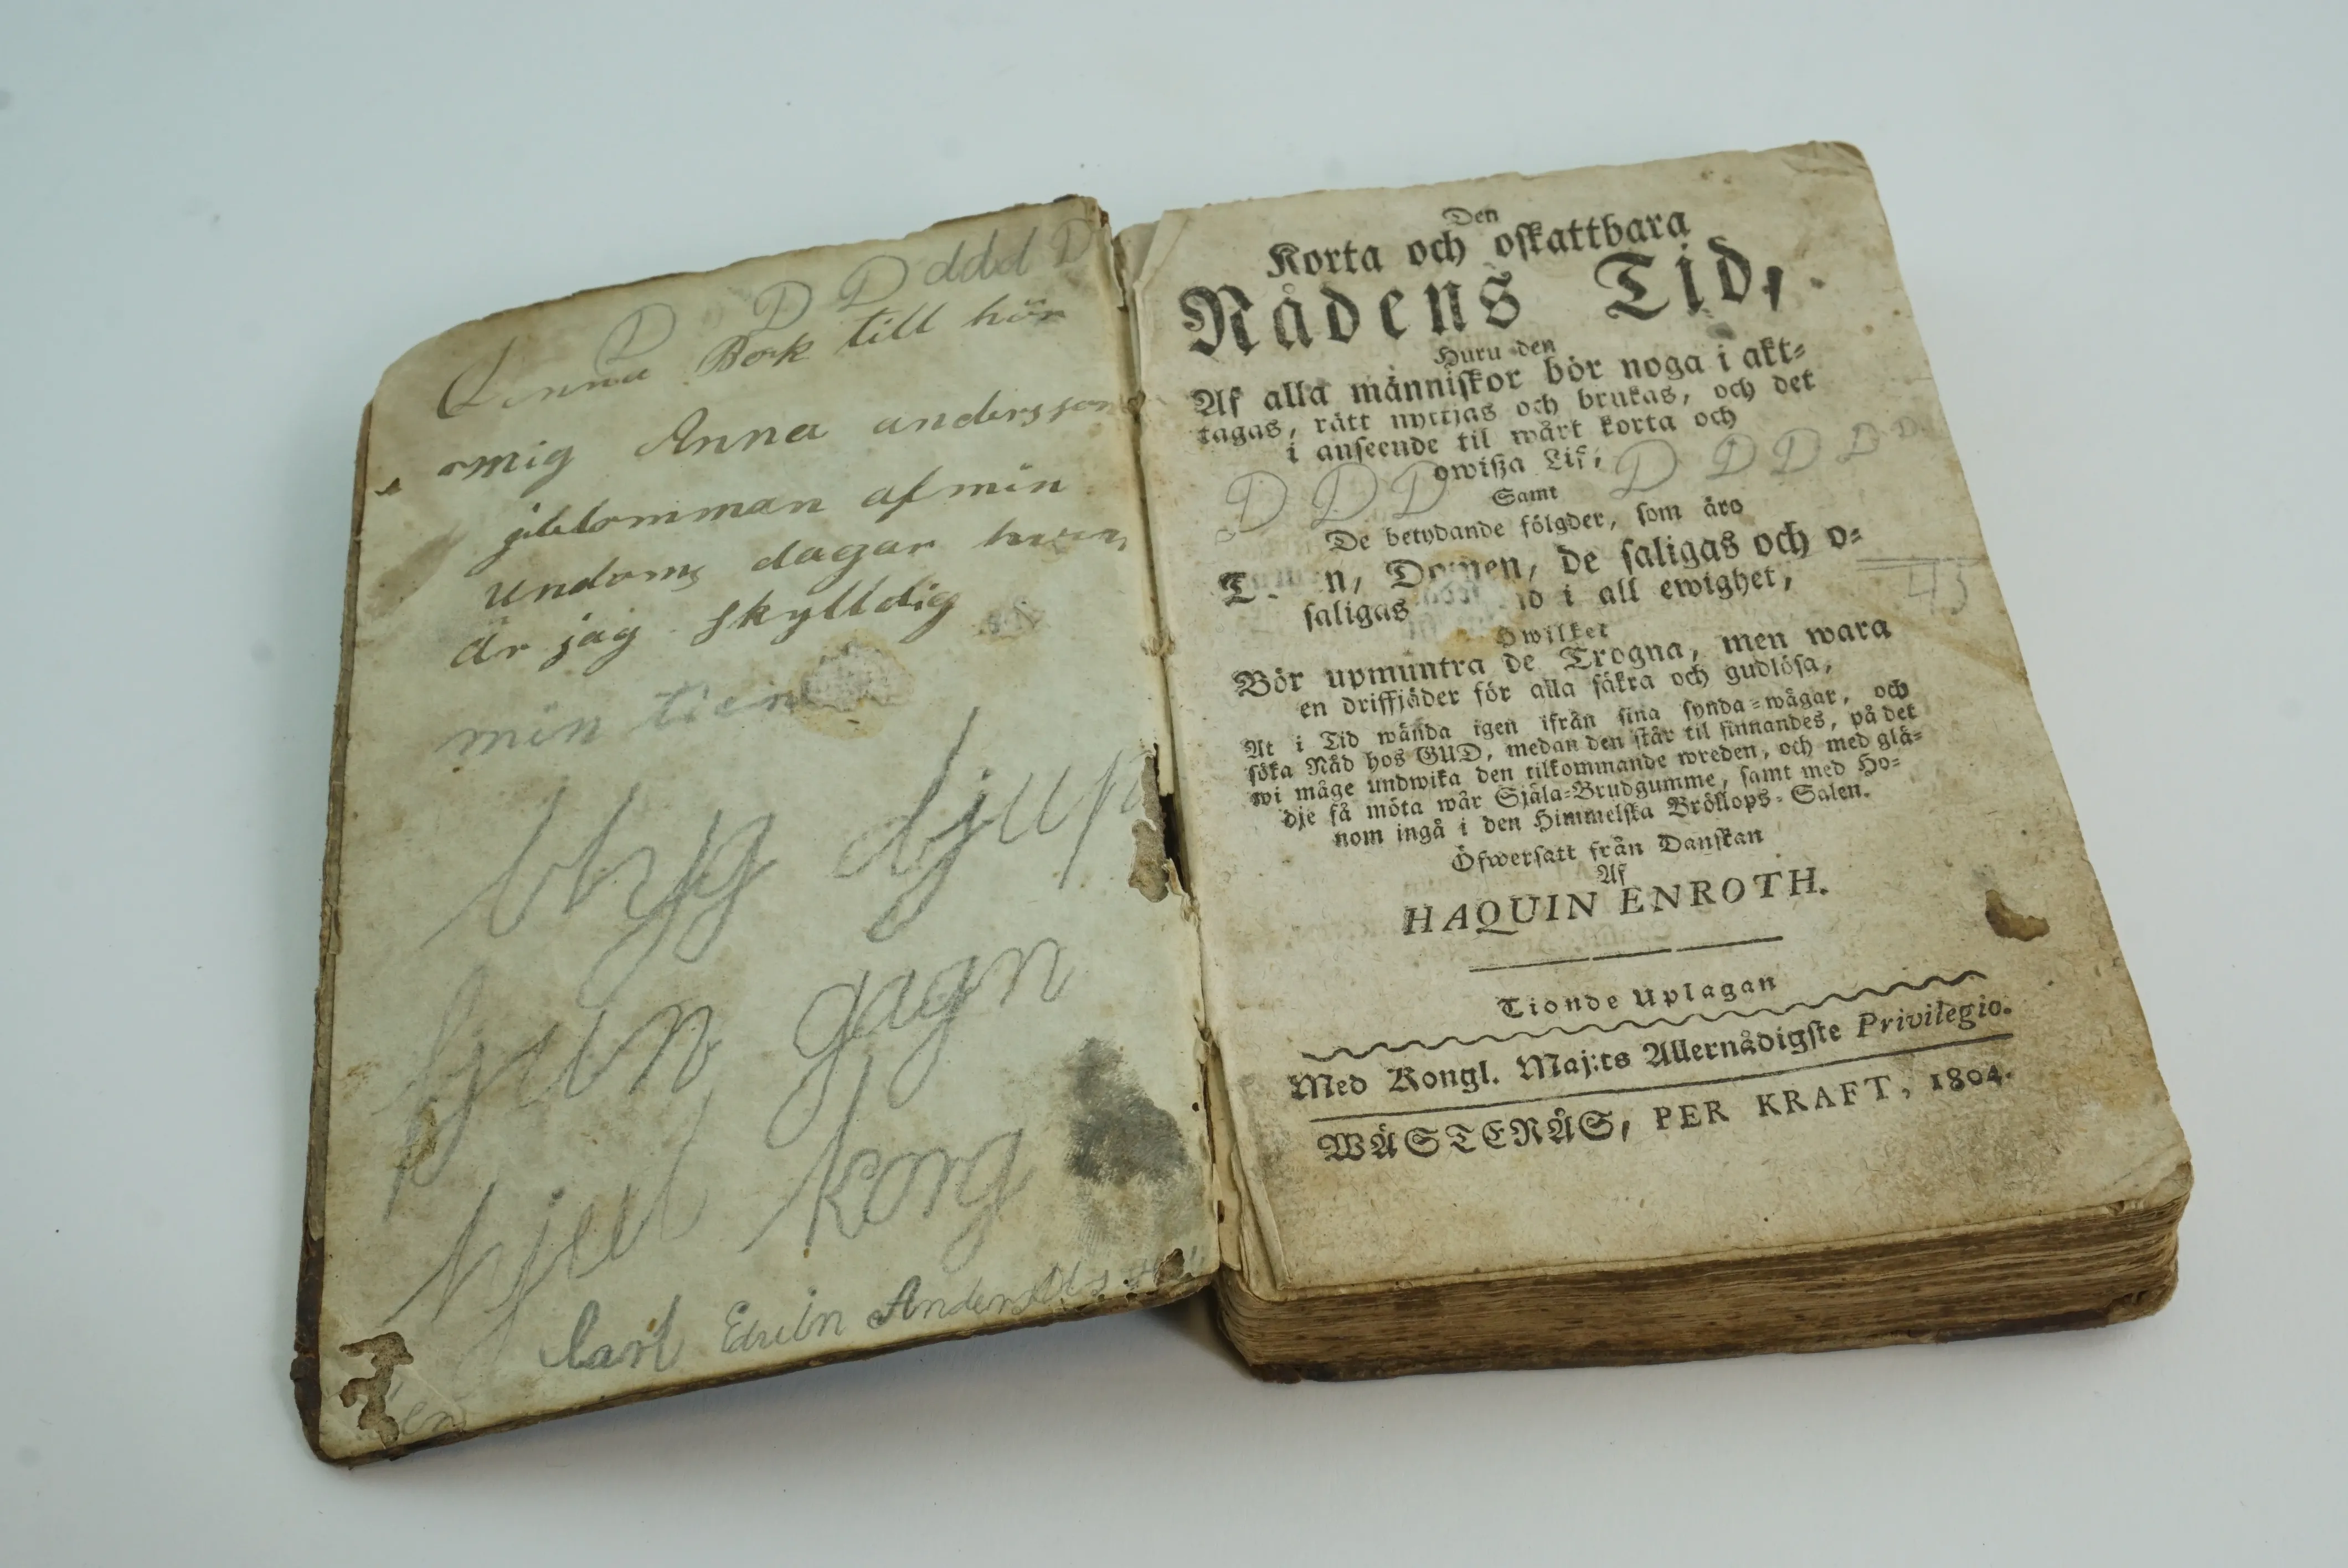 D D D ddd D
Denna Bok till hör
mig Anna andersson
af min
undoms dagar
är jag skylldig
min
byg djup
ljun gagn
hjul korg
Carl Edvin Anderson
Den
Korta och oskattbara
Nådens Tid,
Huru den
Af alla människor bör noga i akt=
tagas, rätt nyttjas och brukas, och det
i anseende til wårt korta och
owißa Lif;
D D D D D D D D
Samt
De betydande fölgder, som äro
Domen, de saligas och o=
saligas i all ewighet,
45
Hwilket
Bör upmuntra de Trogna, men wara
en driffjäder för alla säkra och gudlösa,
At i Tid wända igen ifrån sina synda=wägar, och
söka Nåd hos GUD, medan den står til finnandes, på det
wi måge undwika den tilkommande wreden, och med glä=
dje få möta wår Själa=Brudgumme, samt med Ho=
nom ingå i den Himmelska Bröllops=Salen.
Öfwersatt från Danskan
Af
HAQUIN ENROTH.
Tionde Uplagan
Med Kongl. Maj:ts Allernådigste Privilegio.
WÄSTERÅS, PER KRAFT, 1804.